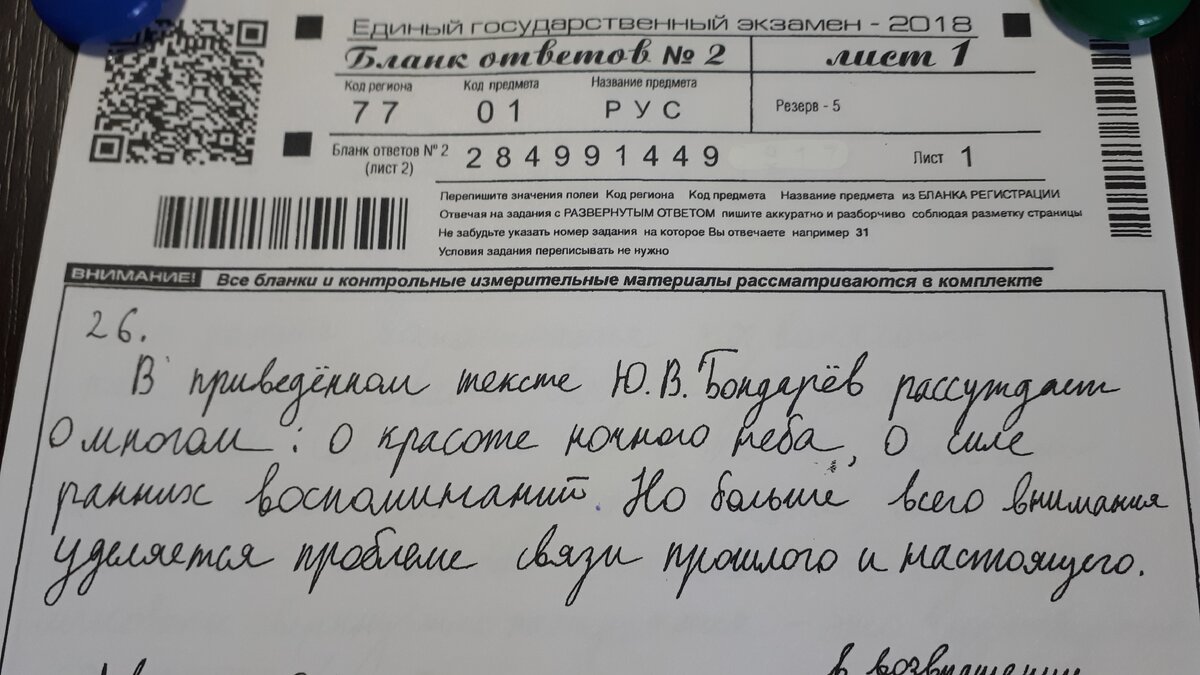 Единый государственный экзамен - 2018
Бланк ответов № 2 лист 1
Код региона Код предмета Название предмета
77 01 РУС Резерв - 5
Бланк ответов № 2 (лист 2) 284991449 Лист 1
Перепишите значения полей Код региона Код предмета Название предмета из БЛАНКА РЕГИСТРАЦИИ
Отвечая на задания с РАЗВЕРНУТЫМ ОТВЕТОМ пишите аккуратно и разборчиво соблюдая разметку страницы
Не забудьте указать номер задания на которое Вы отвечаете например 31
Условия задания переписывать не нужно
ВНИМАНИЕ! Все бланки и контрольные измерительные материалы рассматриваются в комплекте
26.
В приведённом тексте Ю.В.Бондарёв рассуждает
о многом: о красоте ночного неба, о силе
ранних воспоминаний. Но больше всего внимания
уделяется проблеме связи прошлого и настоящего.
в возвращении